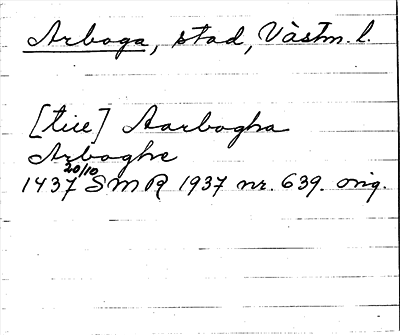 Arboga, stad, Västm. l.
[tiil] Aarbogha
Arboghe
1437 20/10 SMR 1937 nr. 639. orig.